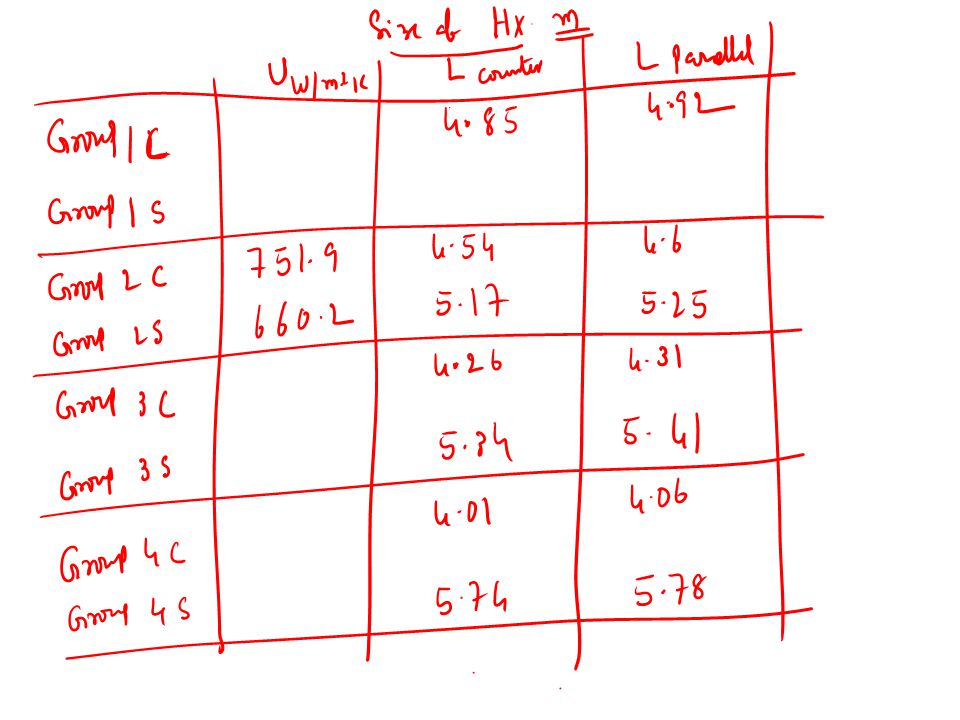 Size of Hx m
U W/m2 K L counter L Parallel
Group 1 C 4.85 4.92
Group 1 S
Group 2 C 751.9 4.54 4.6
Group 2S 660.2 5.17 5.25
Group 3 C 4.26 4.31
Group 3 S 5.34 5.41
Group 4 C 4.01 4.06
Group 4 S 5.74 5.78